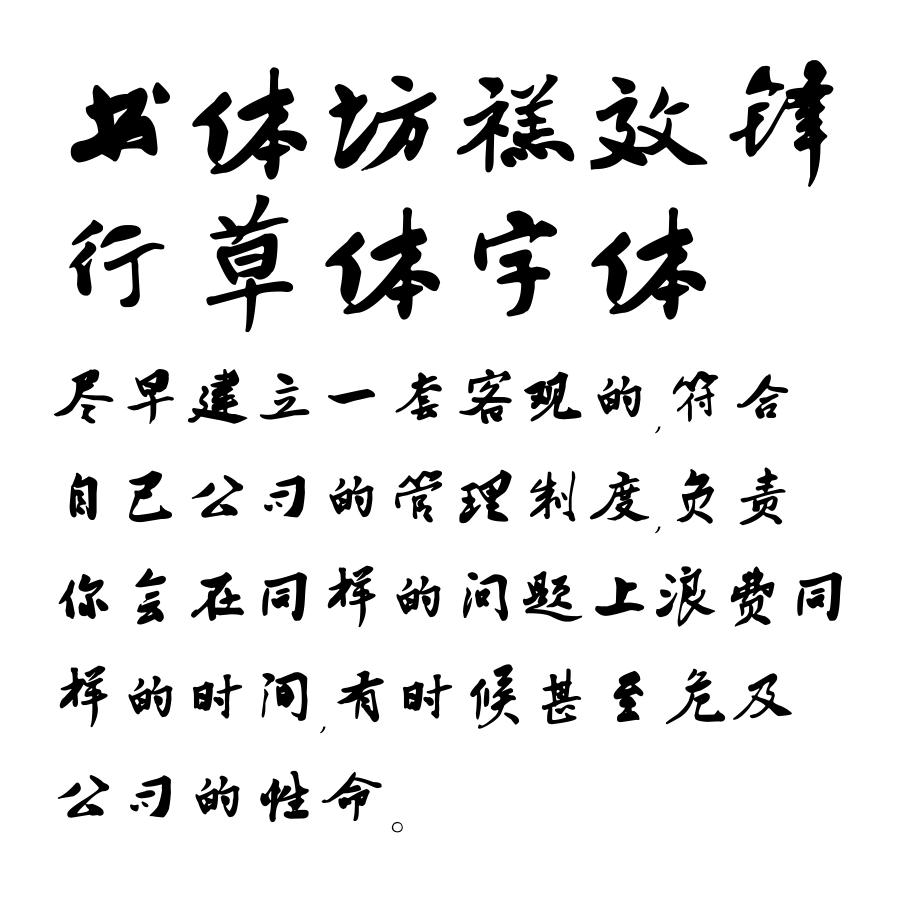 书体坊禚效锋
行草体字体
尽早建立一套客观的,符合
自己公司的管理制度,负责
你会在同样的问题上浪费同
样的时间,有时候甚至危及
公司的性命。